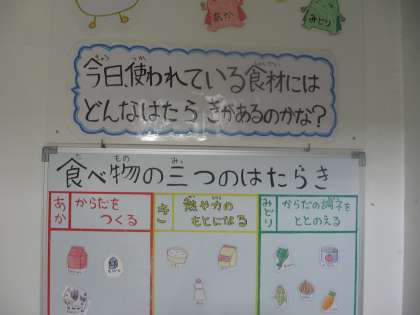 あか
みどり
今日、使われている食材には
どんなはたらきがあるのかな?
食べ物の三つのはたらき
あか
からだを
つくる
きいろ
熱や力の
もとになる
みどり
からだの調子を
ととのえる